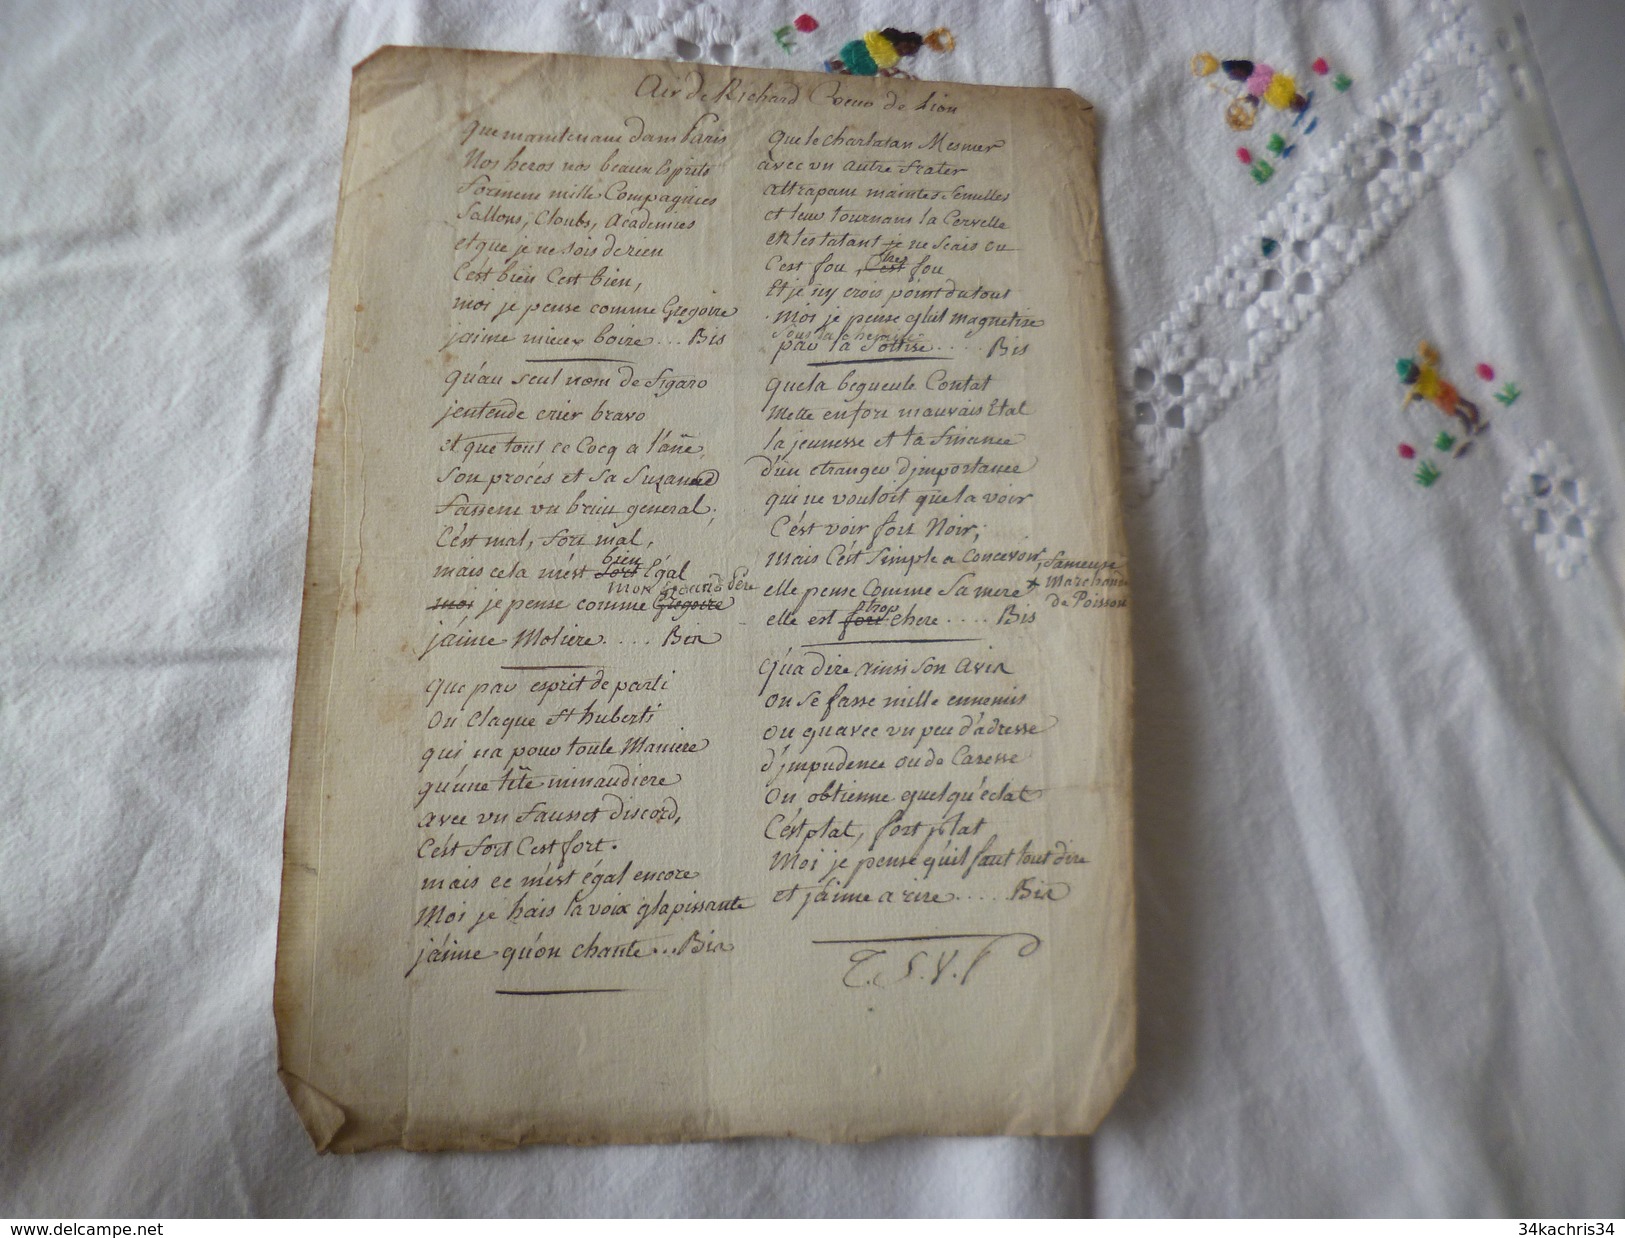 Air de Richard Coeur de Lion
Que maintenant dans Paris
Nos heros nos beaux Esprits
forment mille Compagnies
Sallons, Cloubs, Academies
et que je ne sois de rien
C'est bien C'est bien,
moi je pense comme Gregoire
jaime mieux boire ... Bis
Qu'au seul nom de figaro
jentende crier bravo
et que tout ce Cocq a l'âne,
son procés et sa Suzanne
fassent un bruit general,
C'est mal, fort mal,
mais cela m'est fort bien Egal
moi je pense comme Gregoire mon grand Pere
j'aime Moliere .... Bis
Que par esprit de parti
on claque St huberti
qui na pour toute Maniere
qu'une tête minaudiere
avec un fausset discord,
C'est fort C'est fort.
mais ce m'est égal encore
Moi je hais la voix glapissante
j'aime qu'on chante ... Bis
Que le charlatan Mesmer
avec un autre frater
attrapent maintes femelles
et leur tournant la Cervelle
et les tatant je ne scais ou
C'est fou, C'est tres fou
Et je n'y crois point du tout
Moi je pense qu'il magnetise
sous la chemise
par la sottise .... Bis
Que la begueule Contat
Mette en fort mauvais Etat
la jeunesse et la finance
d'un etranger d'importance
qui ne vouloit que la voir
C'est voir fort Noir,
Mais C'est Simple a Concevoir,
elle pense Comme Sa mere +
fameuse
Marchande
de Poisson
elle est fort trop chere .... Bis
Qu'a dire ainsi son Avis
on se fasse mille ennemis
ou qu'avec un peu d'adresse
d'impudence ou de Caresse
On obtienne quelqu'éclat
C'est plat, fort plat
Moi je pense qu'il faut tout dire
et j'aime a rire .... Bis
T.S.V.P
www.delcampe.net
34kachris34